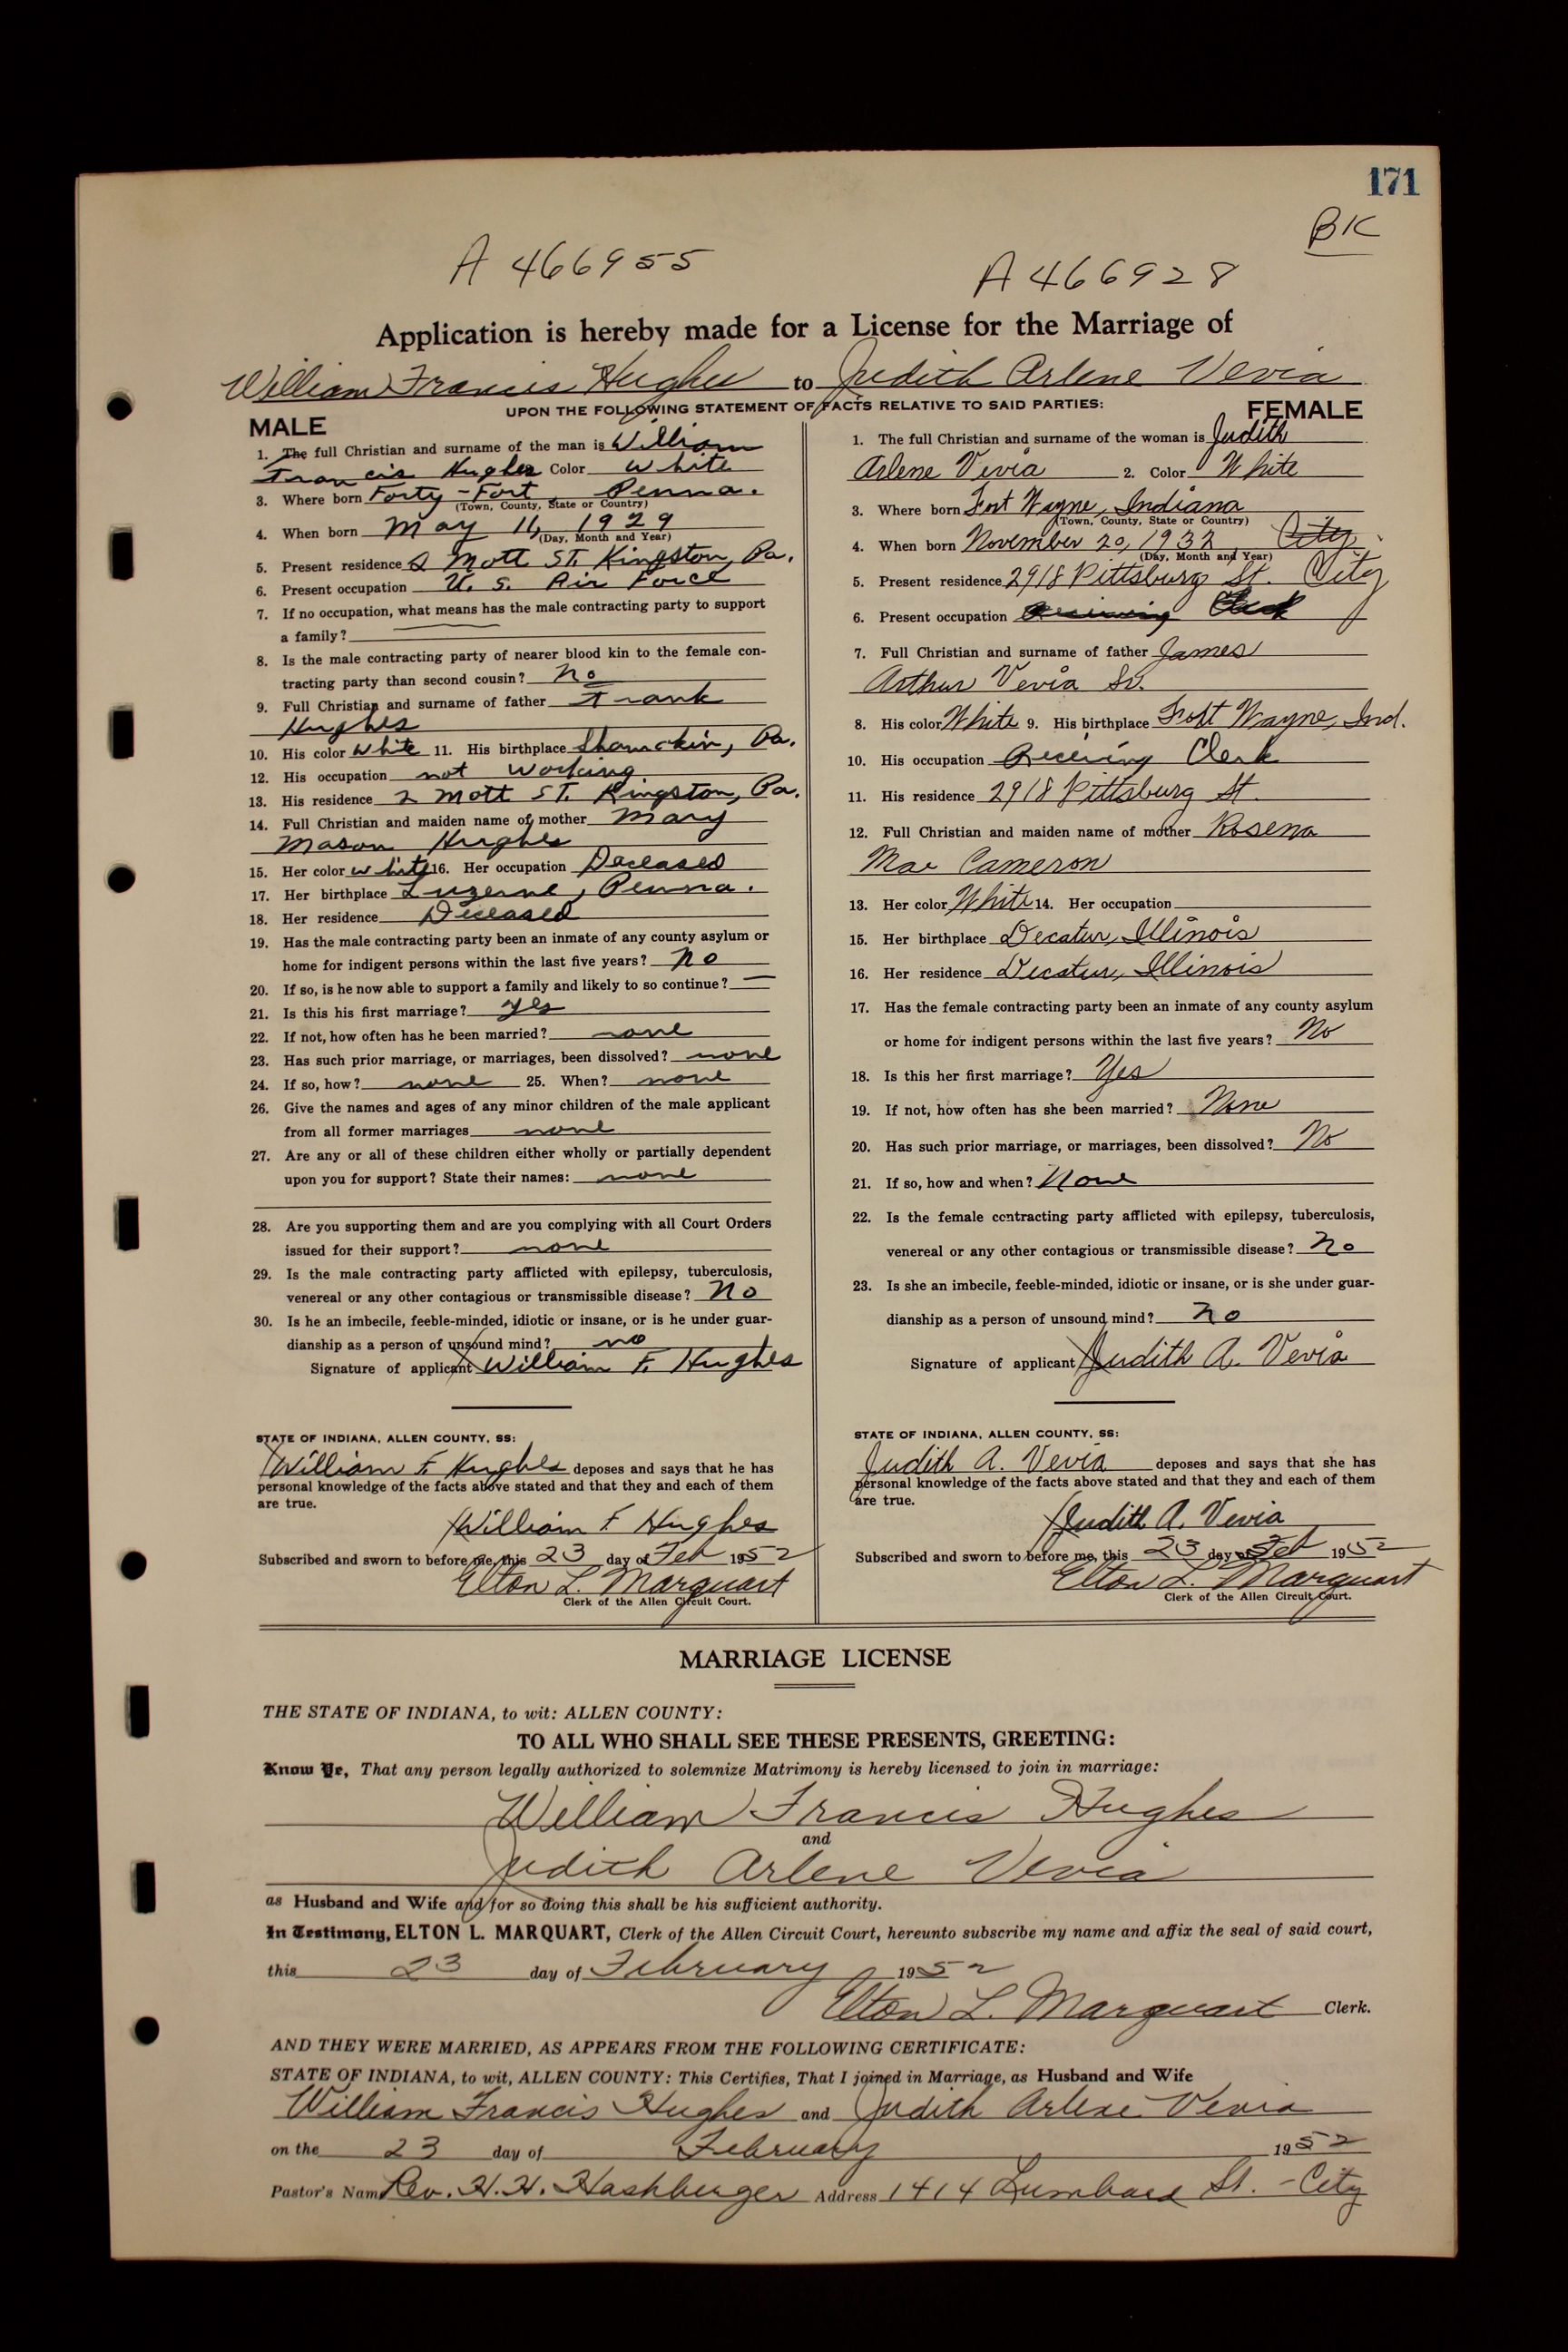 171
BK
A 466955
A 466928
Application is hereby made for a License for the Marriage of
William Francis Hughes to Judith Arlene Vevia
UPON THE FOLLOWING STATEMENT OF FACTS RELATIVE TO SAID PARTIES:
MALE
1. The full Christian and surname of the man is William
Francis Hughes Color white
3. Where born Forty-Fort, Penna.
(Town, County, State or Country)
4. When born May 11, 1929
(Day, Month and Year)
5. Present residence 2 Mott ST. Kingston, Pa.
6. Present occupation U. S. Air Force
7. If no occupation, what means has the male contracting party to support
a family?
8. Is the male contracting party of nearer blood kin to the female con-
tracting party than second cousin? No
9. Full Christian and surname of father Frank
Hughes
10. His color white 11. His birthplace Shamokin, Pa.
12. His occupation not working
13. His residence 2 Mott ST. Kingston, Pa.
14. Full Christian and maiden name of mother Mary
Mason Hughes
15. Her color white 16. Her occupation Deceased
17. Her birthplace Luzerne, Penna.
18. Her residence Deceased
19. Has the male contracting party been an inmate of any county asylum or
home for indigent persons within the last five years? No
20. If so, is he now able to support a family and likely to so continue? —
21. Is this his first marriage? yes
22. If not, how often has he been married? none
23. Has such prior marriage, or marriages, been dissolved? none
24. If so, how? none 25. When? none
26. Give the names and ages of any minor children of the male applicant
from all former marriages none
27. Are any or all of these children either wholly or partially dependent
upon you for support? State their names: none
28. Are you supporting them and are you complying with all Court Orders
issued for their support? none
29. Is the male contracting party afflicted with epilepsy, tuberculosis,
venereal or any other contagious or transmissible disease? No
30. Is he an imbecile, feeble-minded, idiotic or insane, or is he under guar-
dianship as a person of unsound mind? no
Signature of applicant William F. Hughes
STATE OF INDIANA, ALLEN COUNTY, SS:
William F. Hughes deposes and says that he has
personal knowledge of the facts above stated and that they and each of them
are true.
William F Hughes
Subscribed and sworn to before me, this 23 day of Feb 1952
Elton L. Marquart
Clerk of the Allen Circuit Court.
FEMALE
1. The full Christian and surname of the woman is Judith
Arlene Vevia 2. Color White
3. Where born Fort Wayne, Indiana
(Town, County, State or Country)
4. When born November 20, 1932 City
(Day, Month and Year)
5. Present residence 2918 Pittsburg St. City
6. Present occupation Receiving Clerk
7. Full Christian and surname of father James
Arthur Vevia Sr.
8. His color White 9. His birthplace Fort Wayne, Ind.
10. His occupation Receiving Clerk
11. His residence 2918 Pittsburg St.
12. Full Christian and maiden name of mother Rosena
Mae Cameron
13. Her color White 14. Her occupation
15. Her birthplace Decatur, Illinois
16. Her residence Decatur, Illinois
17. Has the female contracting party been an inmate of any county asylum
or home for indigent persons within the last five years? No
18. Is this her first marriage? Yes
19. If not, how often has she been married? None
20. Has such prior marriage, or marriages, been dissolved? No
21. If so, how and when? None
22. Is the female contracting party afflicted with epilepsy, tuberculosis,
venereal or any other contagious or transmissible disease? No
23. Is she an imbecile, feeble-minded, idiotic or insane, or is she under guar-
dianship as a person of unsound mind? No
Signature of applicant Judith A. Vevia
STATE OF INDIANA, ALLEN COUNTY, SS:
Judith A. Vevia deposes and says that she has
personal knowledge of the facts above stated and that they and each of them
are true.
Judith A. Vevia
Subscribed and sworn to before me, this 23 day of Feb 1952
Elton L. Marquart
Clerk of the Allen Circuit Court.
MARRIAGE LICENSE
THE STATE OF INDIANA, to wit: ALLEN COUNTY:
TO ALL WHO SHALL SEE THESE PRESENTS, GREETING:
Know Ye, That any person legally authorized to solemnize Matrimony is hereby licensed to join in marriage:
William Francis Hughes
and
Judith Arlene Vevia
as Husband and Wife and for so doing this shall be his sufficient authority.
In Testimony, ELTON L. MARQUART, Clerk of the Allen Circuit Court, hereunto subscribe my name and affix the seal of said court,
this 23 day of February 1952
Elton L. Marquart Clerk.
AND THEY WERE MARRIED, AS APPEARS FROM THE FOLLOWING CERTIFICATE:
STATE OF INDIANA, to wit, ALLEN COUNTY: This Certifies, That I joined in Marriage, as Husband and Wife
William Francis Hughes and Judith Arlene Vevia
on the 23 day of February 1952
Pastor's Name Rev. H. H. Hashberger Address 1414 Lumbard St. - City